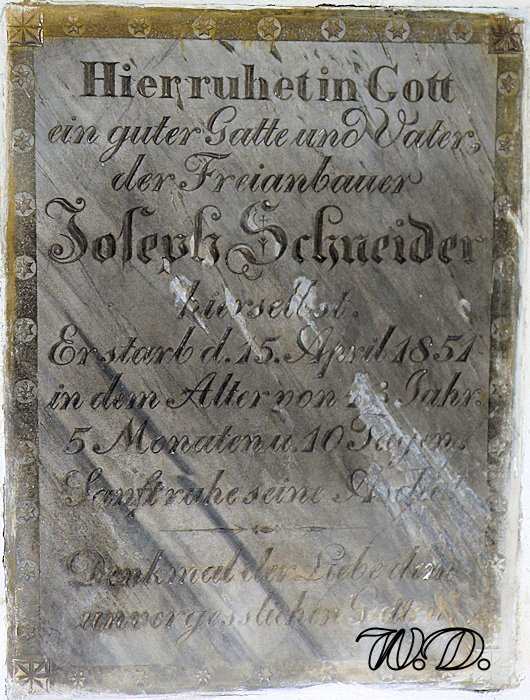 Hier ruhet in Gott
ein guter Gatte und Vater,
der Freianbauer
Joseph Schneider
hierselbst.
Er starb d. 15. April 1851
in dem Alter von Jahr.
5 Monaten u. 10 Tagen.
Sanft ruhe seine Asche!
Denkmal der Liebe dem
unvergesslichen Gatten
W.D.